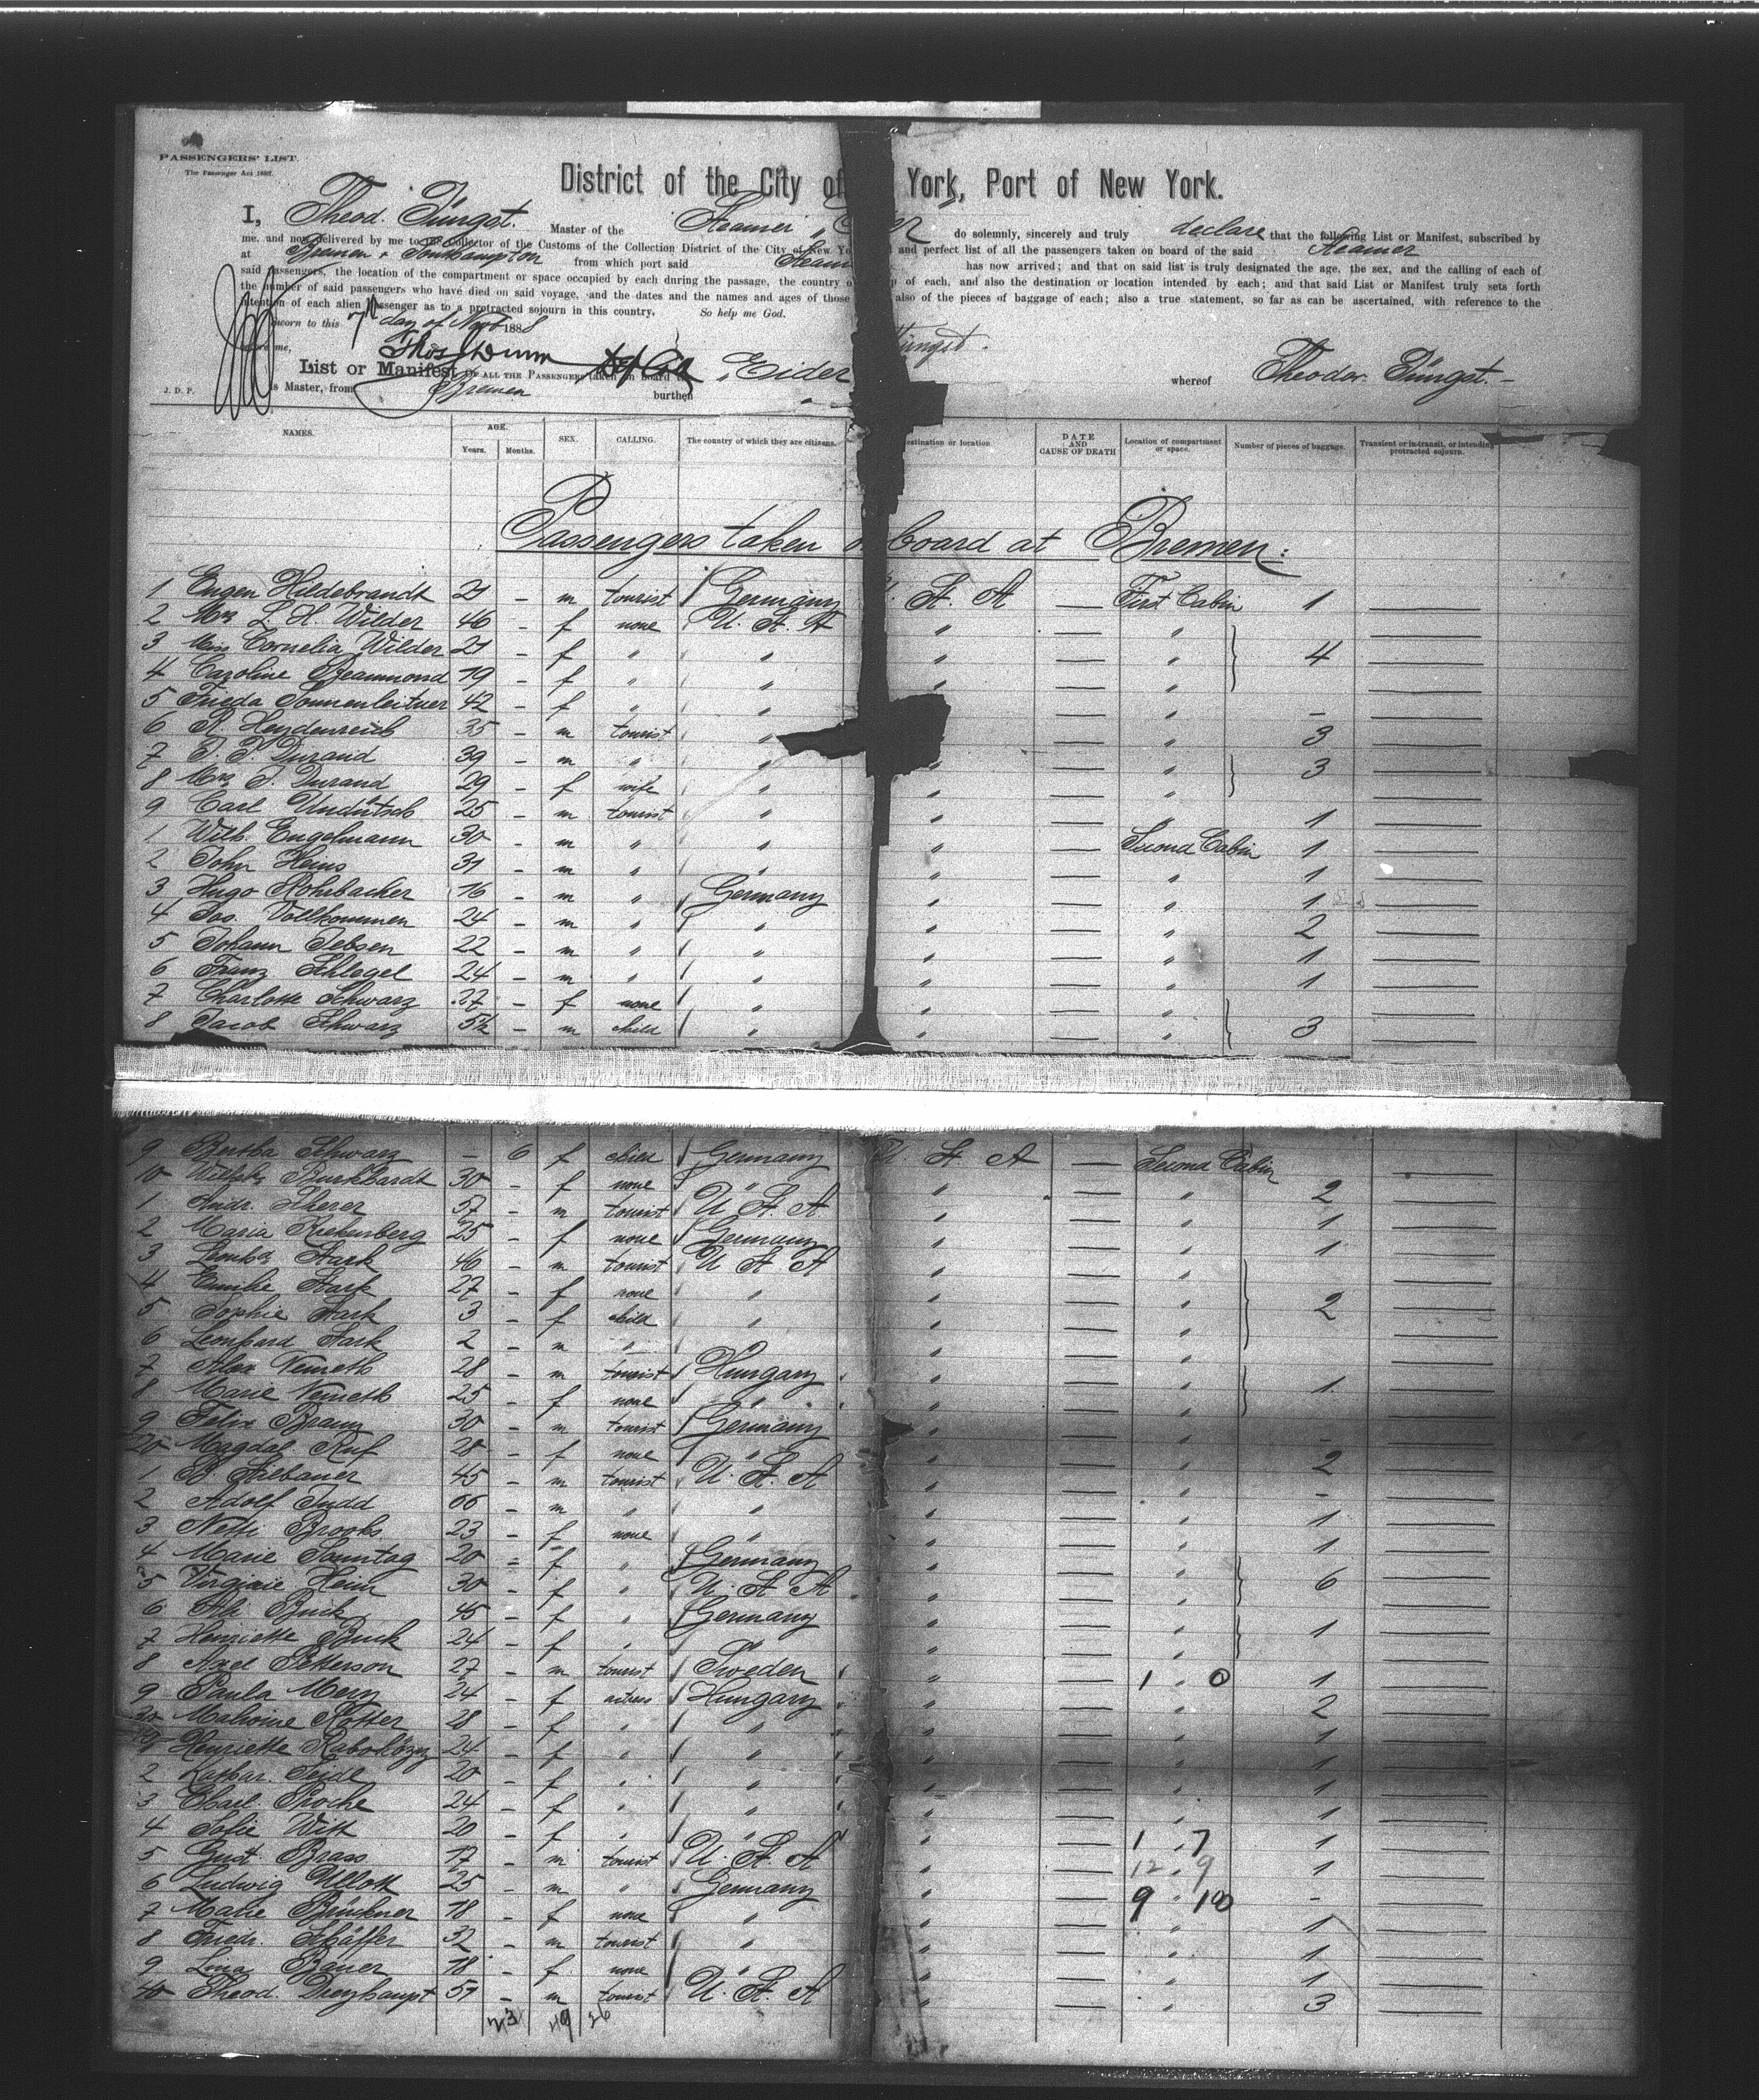 PASSENGERS' LIST.
The Passenger Act 1882.
District of the City of York, Port of New York.
I, Theod. Jüngst. Master of the Steamer " do solemnly, sincerely and truly declare that the following List or Manifest, subscribed by
me, and now delivered by me to the Collector of the Customs of the Collection District of the City of New and perfect list of all the passengers taken on board of the said Steamer
at Bremen & Southampton from which port said has now arrived; and that on said list is truly designated the age, the sex, and the calling of each of
said passengers, the location of the compartment or space occupied by each during the passage, the country of each, and also the destination or location intended by each; and that said List or Manifest truly sets forth
the number of said passengers who have died on said voyage, and the dates and the names and ages of those also of the pieces of baggage of each; also a true statement, so far as can be ascertained, with reference to the
intention of each alien passenger as to a protracted sojourn in this country. So help me God.
Sworn to this 7th day of Novb 1888
before me,
List or Manifest OF ALL THE PASSENGERS taken on board "Eider whereof Theodor. Jüngst.
J. D. P. is Master, from Bremen burthen
NAMES. AGE. Years. Months. SEX. CALLING. The country of which they are citizens. destination or location DATE AND CAUSE OF DEATH Location of compartment or space. Number of pieces of baggage. Transient or in-transit, or intending protracted sojourn.
Passengers taken board at Bremen:
1 Eugen Hildebrandt 21 - m tourist Germany St. A First Cabin 1
2 Mrs L. H. Wilder 46 - f none U. St. A " "
3 Miss Cornelia Wilder 21 - f " " " " 4
4 Caroline Beaumond 19 - f " " " "
5 Frieda Sonnenleitner 42 - f " " " " -
6 R Heydenreich 35 - m tourist " " 3
7 T. T. Durand 39 - m " " " " 3
8 Mrs T. Durand 29 - f wife " " "
9 Carl Undütsch 25 - m tourist " " " 1
1 Wilh. Engelmann 30 - m " " " Second Cabin 1
2 John Hems 31 - m " " " " 1
3 Hugo Rohrbacher 16 - m " Germany " " 1
4 Jos. Vollkommen 24 - m " " " " 2
5 Johann Jebsen 22 - m " " " " 1
6 Franz Schlegel 24 - m " " " " 1
7 Charlotte Schwarz 27 - f none " " "
8 Jacob Schwarz 5½ - m child " " " 3
9 Bertha Schwarz - 6 f child Germany U St A Second Cabin
10 Burkhardt 30 - f none " " " 2
1 Andr. Scherer 57 - m tourist U. St. A " " 1
2 Maria Rickenberg 25 - f none Germany " " 1
3 Stark 46 - m tourist U St A " "
4 Emilie Stark 27 - f none " " " 2
5 Sophie Stark 3 - f child " " "
6 Leonhard Stark 2 - m " " "
7 Alex Nemeth 28 - m tourist Hungary " " 1
8 Marie Nemeth 25 - f none " " "
9 Felix Braun 30 - m tourist Germany " " -
20 Magdal. Ruf 28 - f none " " " 2
1 45 - m tourist U. St. A " " -
2 Adolf Judd 66 - m " " " " 1
3 Netti Brooks 23 - f none " " " 1
4 Marie Sonntag 20 - f " Germany " " 6
5 Virginie Heim 30 - f " U. St A " "
6 Buck 45 - f " Germany " " 1
7 Henriette Buck 24 - f " " " "
8 Axel Petterson 27 - m tourist Sweden " 1 " 0 1
9 Paula Merz 24 - f actress Hungary " " 2
30 Malwine Rotter 28 - f " " " " 1
Henriette 24 - f " " " " 1
2 Kathar. Seidl 20 - f " " " " 1
3 Charl. Roche 24 - f " " " " 1
4 Sofie Witt 20 - f " " " 1 " 7 1
5 Gust. Brass 17 - m tourist U. St. A " 12 " 9 1
6 Ludwig 25 - m " Germany " 9 " 10 -
7 Marie Brückner 18 - f none " " " 1
8 Friedr. Schäffer 32 - m tourist " " " 1
9 Lina Bauer 18 - f none " " " 1
40 Theod. Dreyhaupt 57 - m tourist U. St. A " " 3
23 49 26